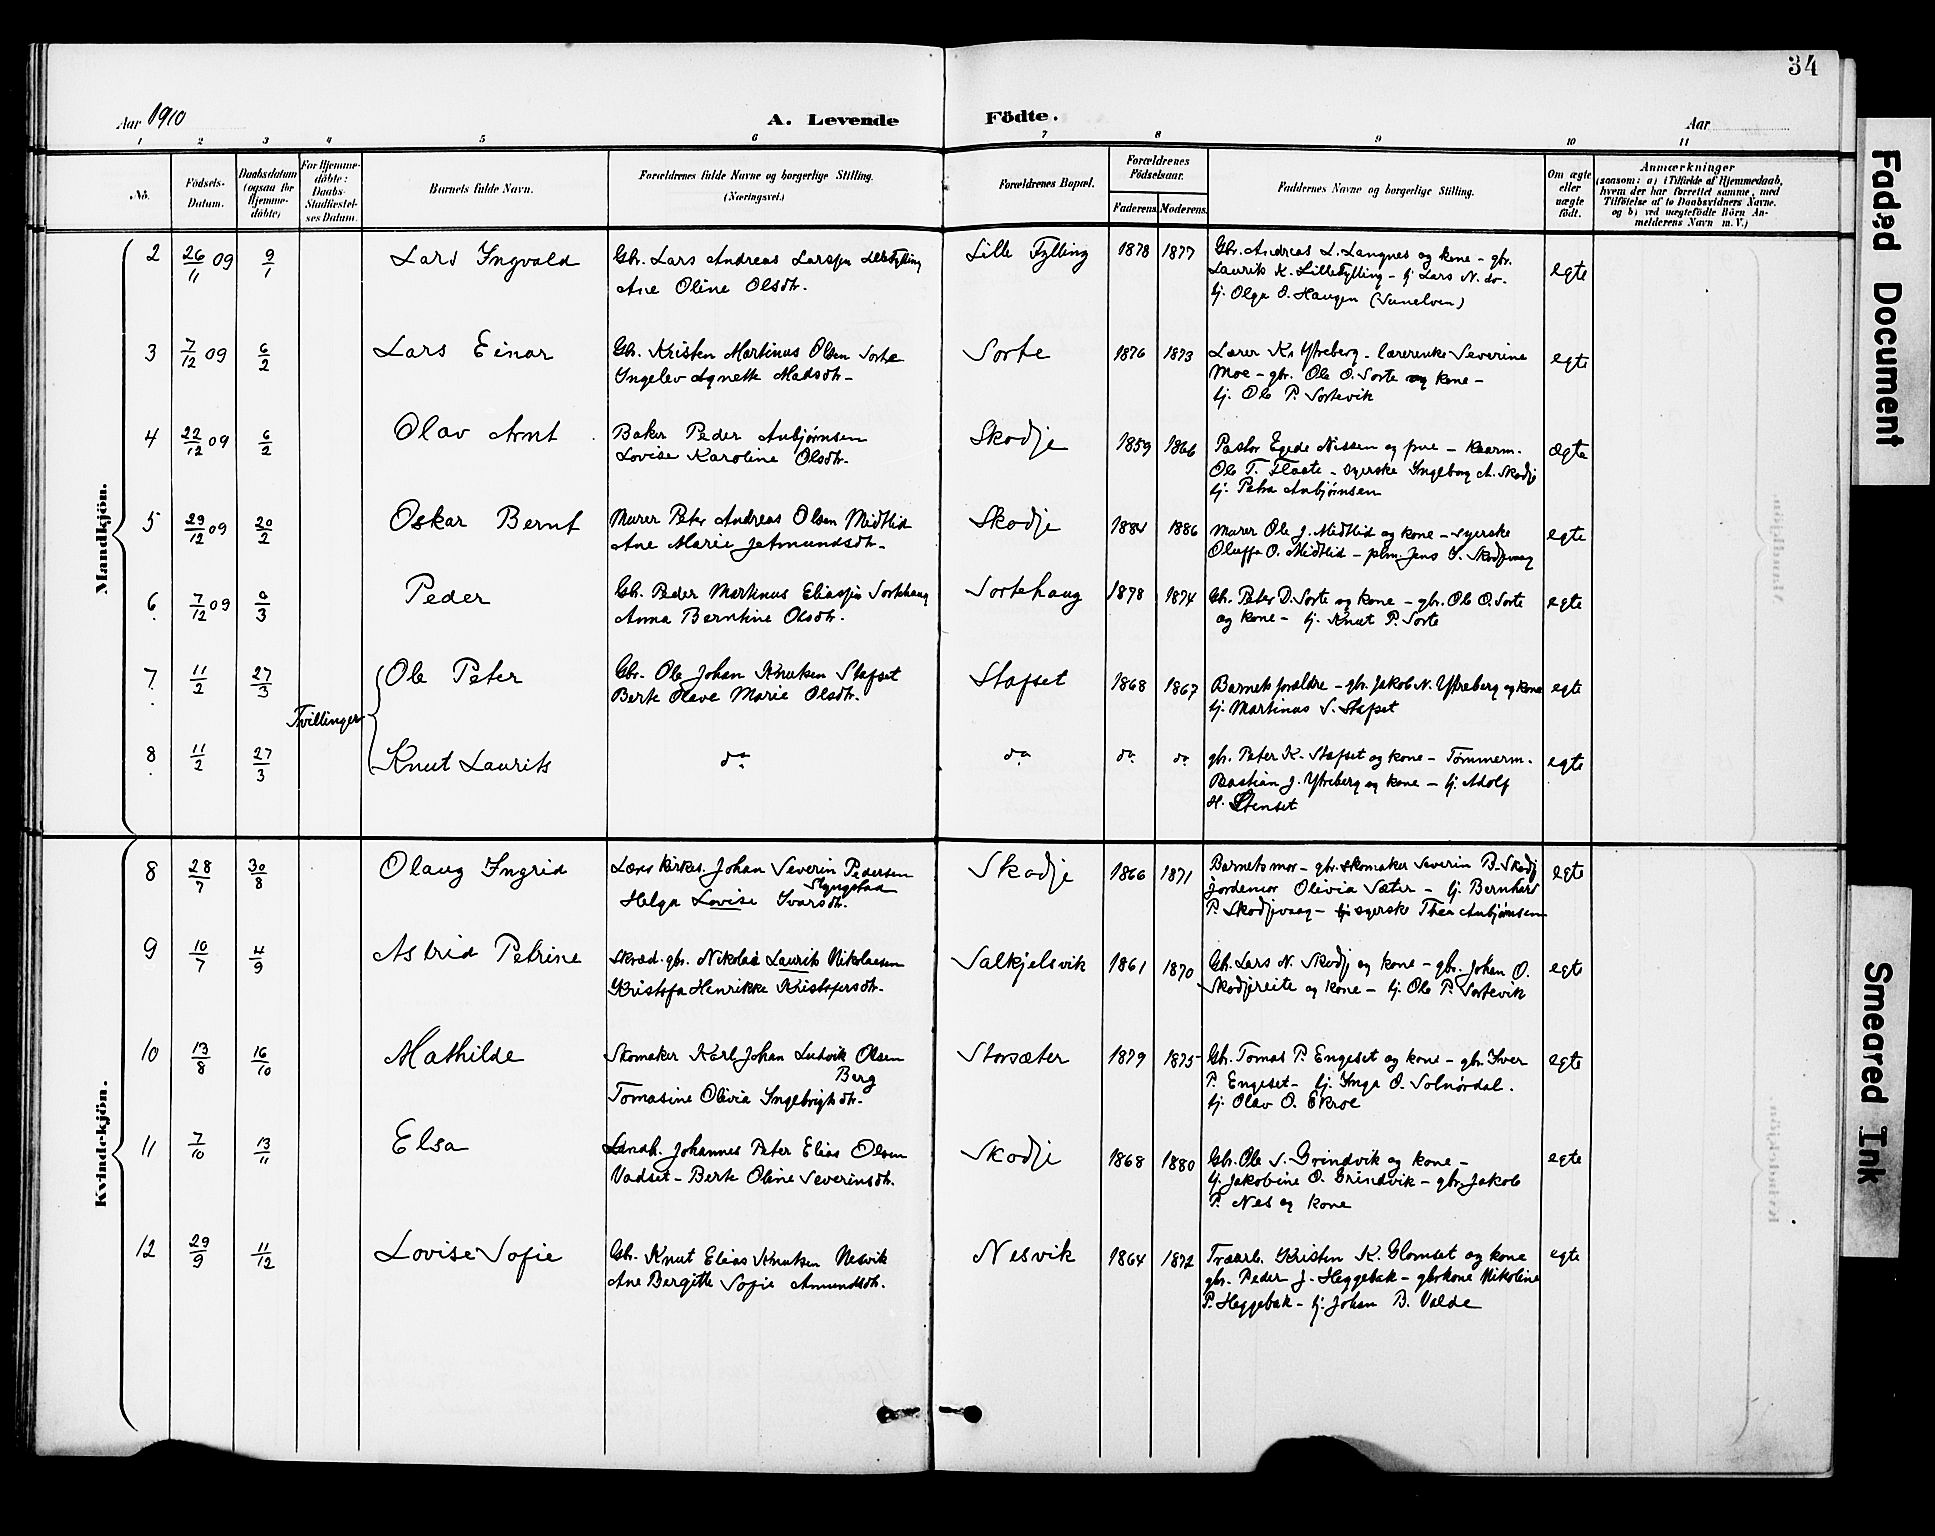 34
Aar 1910
A. Levende Födte.
Aar
1 2 3 4 5 6 7 8 9 10 11
No.
Födsels-Datum.
Daabsdatum (ogsaa för Hjemme-döbte)
For Hjemme-döbte: Daabs-Stadfæstel-ses Datum.
Barnets fulde Navn.
Forældrenes fulde Navne og borgerlige Stilling. (Næringsvei.)
Forældrenes Bopæl.
Forældrenes Födselsaar.
Faderens. Moderens.
Faddernes Navne og borgerlige Stilling.
Om ægte eller uægte födt.
Anmærkninger
(saasom: a) i Tilfælde af Hjemmedaab, hvem der har forrettet samme, med Tilföielse af to Daabsvidners Navne. og b) ved uægtefödte Börn An-melderens Navn m. V.)
Mandkjön.
2 26/11 09 9/1 Lars Ingvald
Gbr. Lars Andreas Larssen Lillefylling
Ane Oline Olsdtr.
Lille Fylling 1878 1877
Gbr. Andreas L. Langnes og kone - gbr.
Laurits K. Lillefylling - tj. Lars N. do.
tj. Olga O. Haugen (Sunelven)
egte
3 7/12 09 6/2 Lars Einar
Gbr. Kristen Martinus Olsen Sorte
Ingelev Agnette Madsdtr.
Sorte 1876 1873
Lærer K. Ytreberg - lærerenke Severine
Moe - gbr. Ole O. Sorte og kone -
tj. Ole P. Sortevik
egte
4 22/12 09 6/2 Olav Arnt
Baker Peder Anbjørnsen
Lovise Karoline Olsdtr.
Skodje 1859 1866
Pastor Egede Nissen og frue -
Ole T. Flaate - syerske Ingeborg A. Skodje
tj. Petra Anbjørnsen
ægte
5 29/12 09 20/2 Oskar Bernt
Murer Peter Andreas Olsen Midtlid
Ane Marie Jetmundsdtr.
Skodje 1884 1886
Murer Ole J. Midtlid og kone - syerske
Oluffa O. Midtlid - Jens Skodjevaag
egte
6 7/12 09 /3 Peder
Gbr. Peder Martinus Eliassen Sortehaug
Anna Berntine Olsdtr.
Sortehaug 1878 1874
Gbr. Peter D. Sorte og kone - gbr. Ole O. Sorte
og kone - tj. Knut P. Sorte
egte
7 11/2 27/3 Ole Peter
Gbr. Ole Johan Knutsen Stafset
Berte Olave Marie Olsdtr.
Stafset 1868 1867
Barnets forældre - gbr. Jakob N. Ytreberg og kone
tj. Martinus S. Stafset
egte
Tvillinger
8 11/2 27/3 Knut Laurits
do do do do
gbr. Peter K. Stafset og kone - Tømmerm.
Bastian J. Ytreberg og kone - tj. Adolf
H. Stenset
egte
Kvindekjön.
8 28/7 30/8 Olaug Ingrid
Lærer kirkes. Johan Severin Pedersen
Slyngstad
Helga Lovise Ivarsdtr.
Skodje 1866 1871
Barnets mor - gbr. skomaker Severin B. Skodje
jordemor Olivia Sæter - tj. Bernhard
P. Skodjevaag - syerske Thea Anbjørnsen
egte
9 10/7 4/9 Astrid Petrine
Skræd. gbr. Nikolai Laurits Nikolaisen
Kristofa Henrikke Kristofersdtr.
Valkjelsvik 1861 1870
Gbr. Lars N. Skodje og kone - gbr. Johan O.
Skodjereite og kone - tj. Ole P. Sortevik
egte
10 13/8 16/10 Mathilde
Skomaker Karl Johan Ludvik Olsen
Berg
Tomasine Olivia Ingebrigtsdtr.
Storsæter 1879 1875
Gbr. Tomas P. Engeset og kone - gbr. Iver
P. Engeset - tj. Inga O. Solnørdal.
tj. Olav O. Ekroe
egte
11 7/10 13/11 Elsa
Landh. Johannes Peter Elias Olsen
Vadset - Berte Oline Severinsdtr.
Skodje 1868 1880
Gbr. Ole S. Grindvik og kone -
tj. Jakobine O. Grindvik - gbr. Jakob
P. Nes og kone
egte
12 29/9 11/12 Lovise Sofie
Gbr. Knut Elias Knutsen Nesvik
Ane Bergitte Sofie Amundsdtr.
Nesvik 1864 1872
Træarb. Kristen K. Glomset og kone
gbr. Peder J. Heggebak - gbrkone Nikoline
P. Heggebak - tj. Johan B. Valde
egte
Faded Document
Smeared Ink